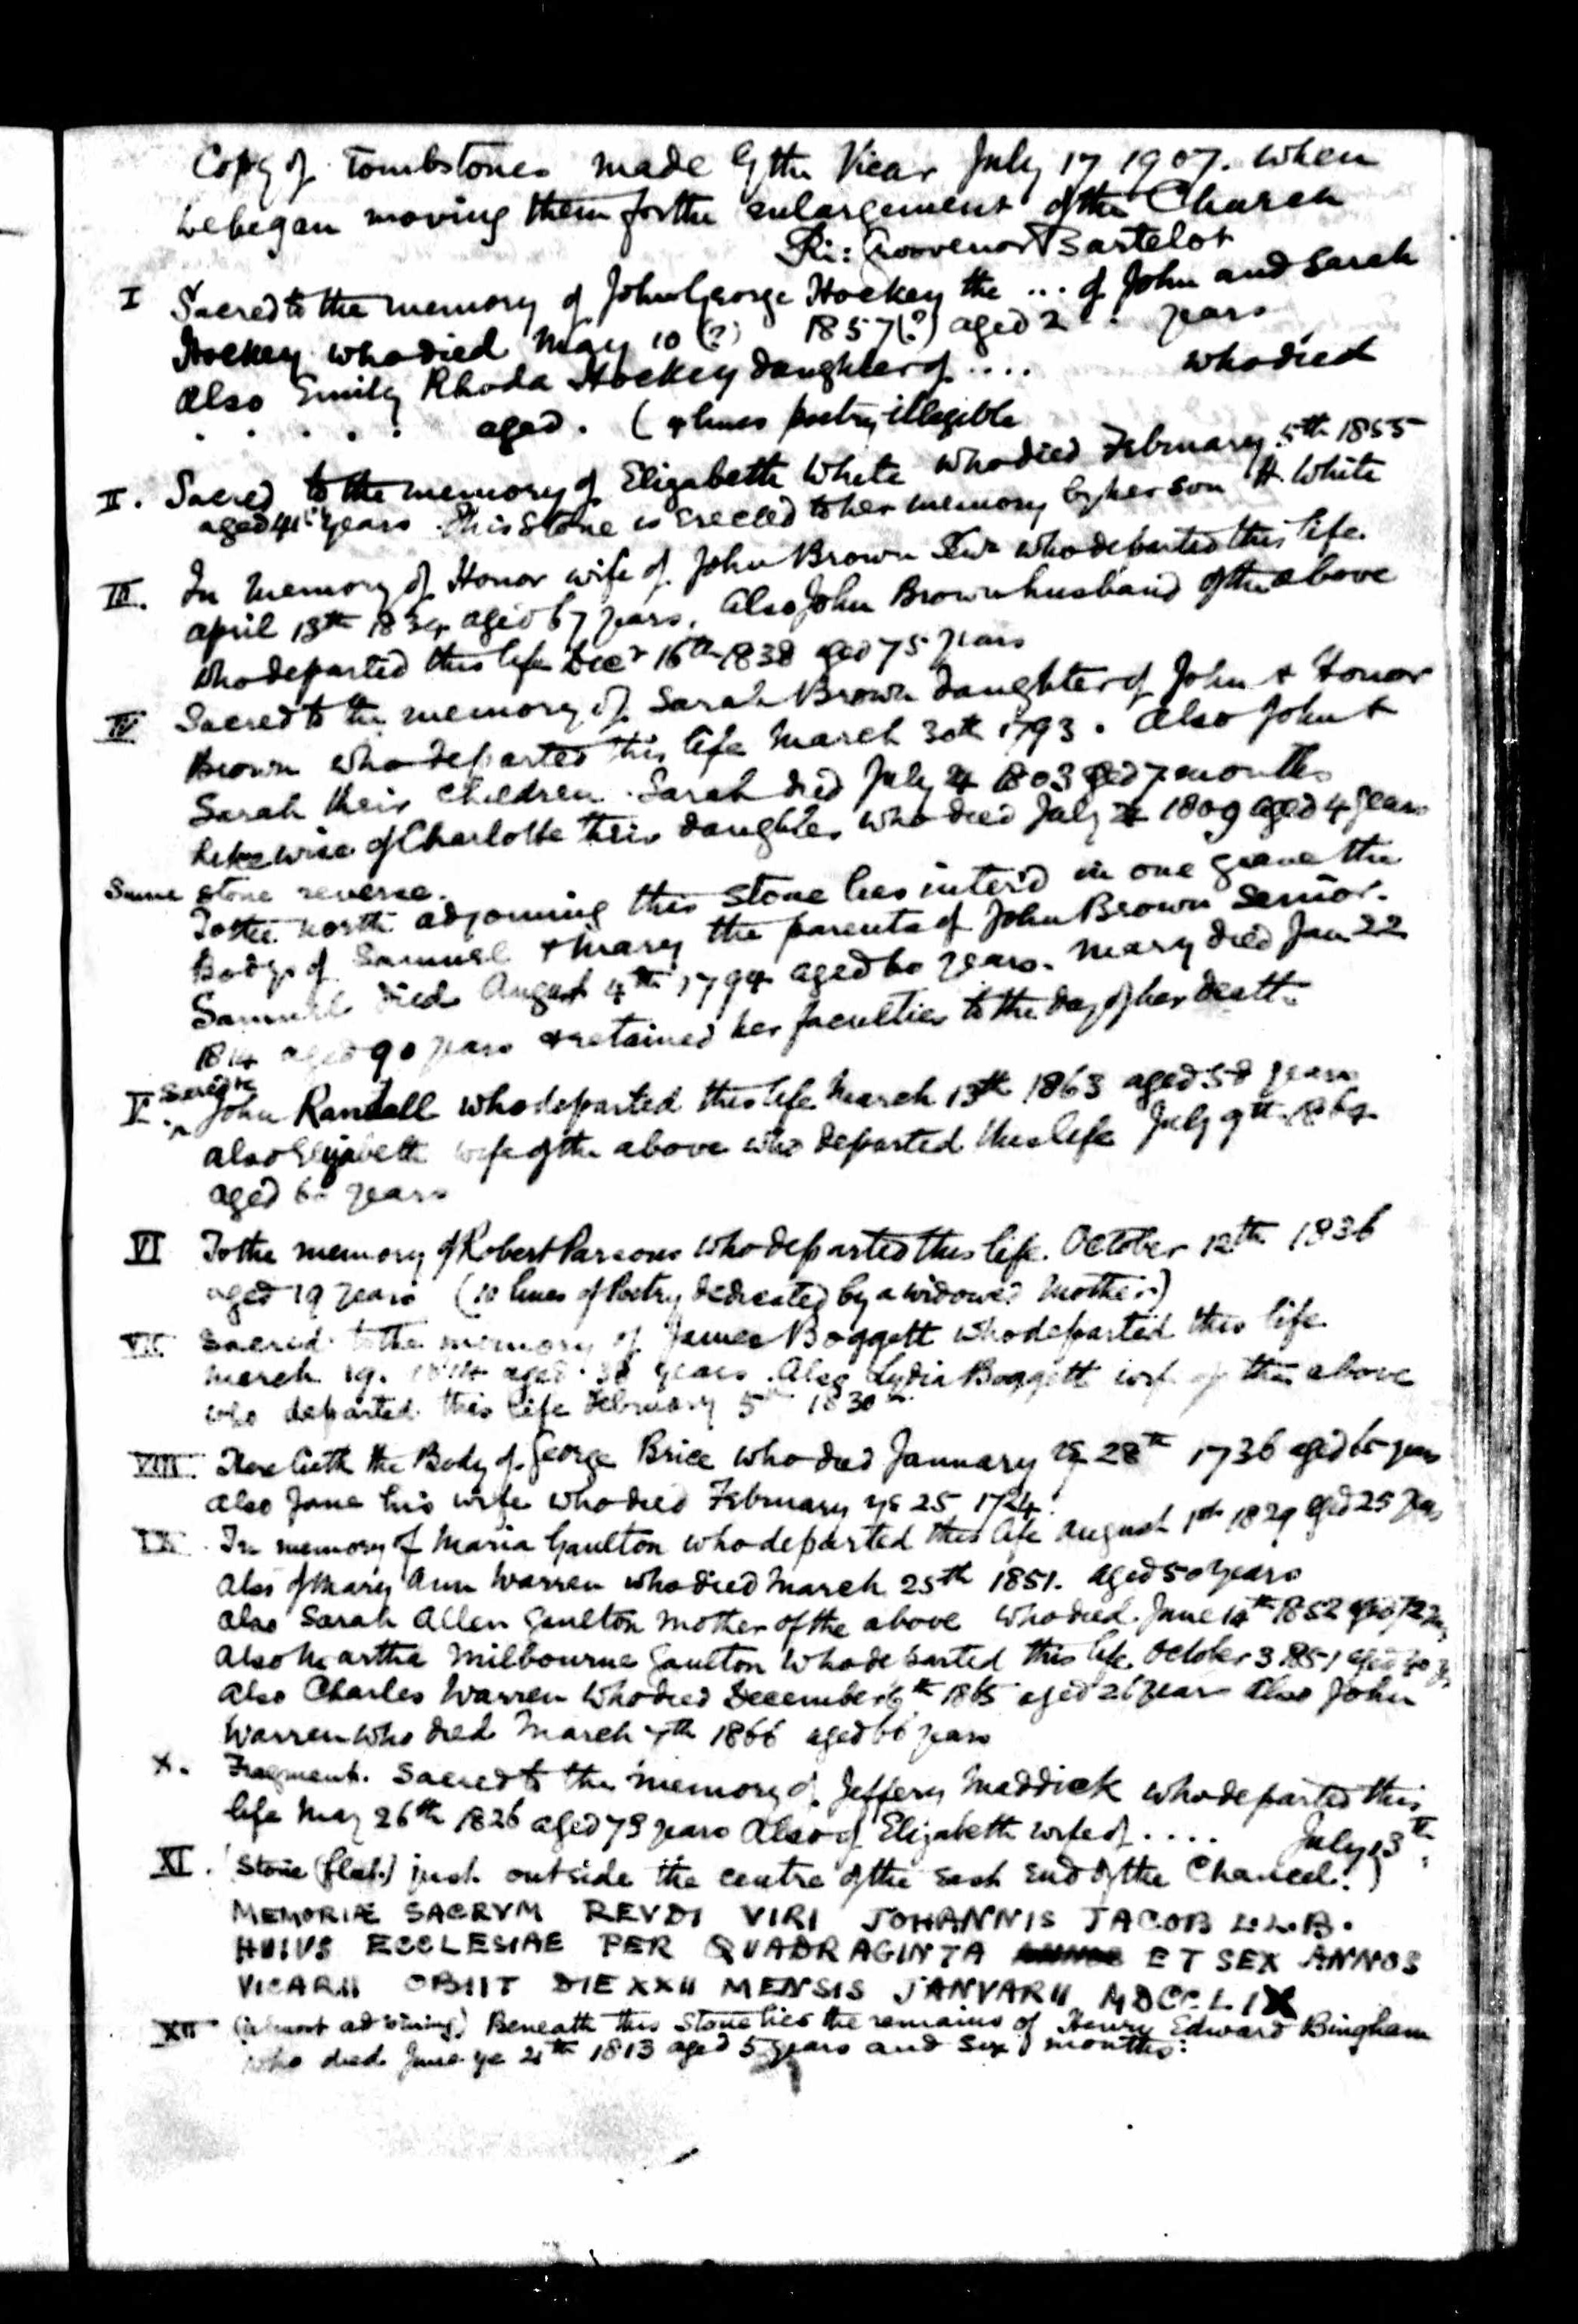 Copy of Tombstones made by the Vicar July 17 1907. when
we began moving them for the enlargement of the Church
Ri: Grosvenor Bartelot
I Sacred to the memory of John George Hockey the ... of John and Sarah
Hockey who died May 10 (?) 1857(?) aged 2 . . years
Also Emily Rhoda Hockey daughter of .... who died
. . . . . aged . (4 lines poetry illegible
II. Sacred to the memory of Elizabeth White who died February 5th 1855
aged 41 years This Stone is erected to her memory by her son H. White
III. In Memory of Honor wife of John Brown who departed this life
April 13th 1834 aged 67 years. Also John Brown husband of the above
who departed this life Decr 16th 1838 aged 75 years
IV Sacred to the memory of Sarah Brown daughter of John & Honor
Brown who departed this life March 30th 1793. Also John &
Sarah their children. Sarah died July 4 1803 aged 7 months
Likewise of Charlotte their daughter who died July 1809 aged 4 years
Same stone reverse.
To the north adjoining this stone lies inter'd in one grave the
Bodys of Samuel & Mary the parents of John Brown Senior.
Samuel died August 4th 1794 aged 60 years. Mary died Jan 22
1814 aged 90 years & retained her faculties to the day of her death
V. Sacred to John Randall who departed this life March 13th 1863 aged 58 years
also Elizabeth wife of the above who departed this life July 9th 1864
aged years
VI To the memory of Robert Parsons who departed this life October 12th 1836
aged 19 years (10 lines of Poetry dedicated by a widowed Mother)
VII Sacred to the memory of James Boggett who departed this life
March 19. aged 38 years. Also Lydia Boggett wife of the above
who departed this life February 5th 1830
VIII. Here lieth the Body of George Brice who died January ye 28th 1736 aged 65 years
also Jane his wife who died February ye 25 1724.
IX In memory of Maria Gaulton who departed this life August 1st 1829 aged 25 years
Also of Mary Ann Warren who died March 25th 1851. aged 50 years
also Sarah Allen Gaulton mother of the above who died June 14th 1852 aged 72
Also Martha Milbourne Gaulton who departed this life October 3 1851 aged 40
Also Charles Warren who died December 6th 1865 aged 26 years Also John
Warren who died March 7th 1866 aged 66 years
X. Fragment. Sacred to the memory of Jeffery Maddick who departed this
life May 26th 1826 aged 79 years Also of Elizabeth wife of .... July 13th
XI. (Stone (flat) just outside the centre of the East End of the Chancel.)
MEMORIÆ SACRVM REVDI VIRI JOHANNIS JACOB L.L.B.
HUIVS ECCLESIAE PER QVADRAGINTA ET SEX ANNOS
VICARII OBIIT DIE XXII MENSIS JANVARII MDCCLIX
XII (almost adjoining) Beneath this Stone lies the remains of Henry Edward Bingham
who died June ye 21th 1813 aged 5 years and six months: